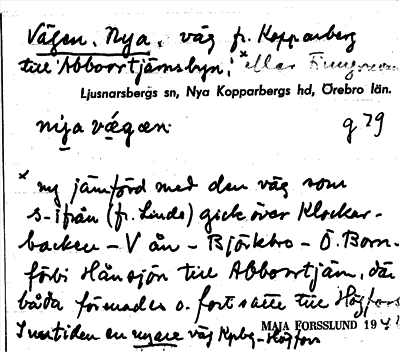 Vägen, Nya, väg fr. Kopparberg
till Abborrtjärnsbyn. x eller
Ljusnarsbergs sn, Nya Kopparbergs hd, Örebro län.
nija vǽgæn g 29
x ny jämförd med den väg som
s-ifrån (fr. Linde) gick över Klockar-
backen – V ån – Björkbro – Ö. Born-
förbi Hånsjön till Abborrtjärn, där
båda förenades o. fortsatte till Högfors
I nutiden en nyare väg Kpbg – Högfors
MAJA FORSSLUND 19